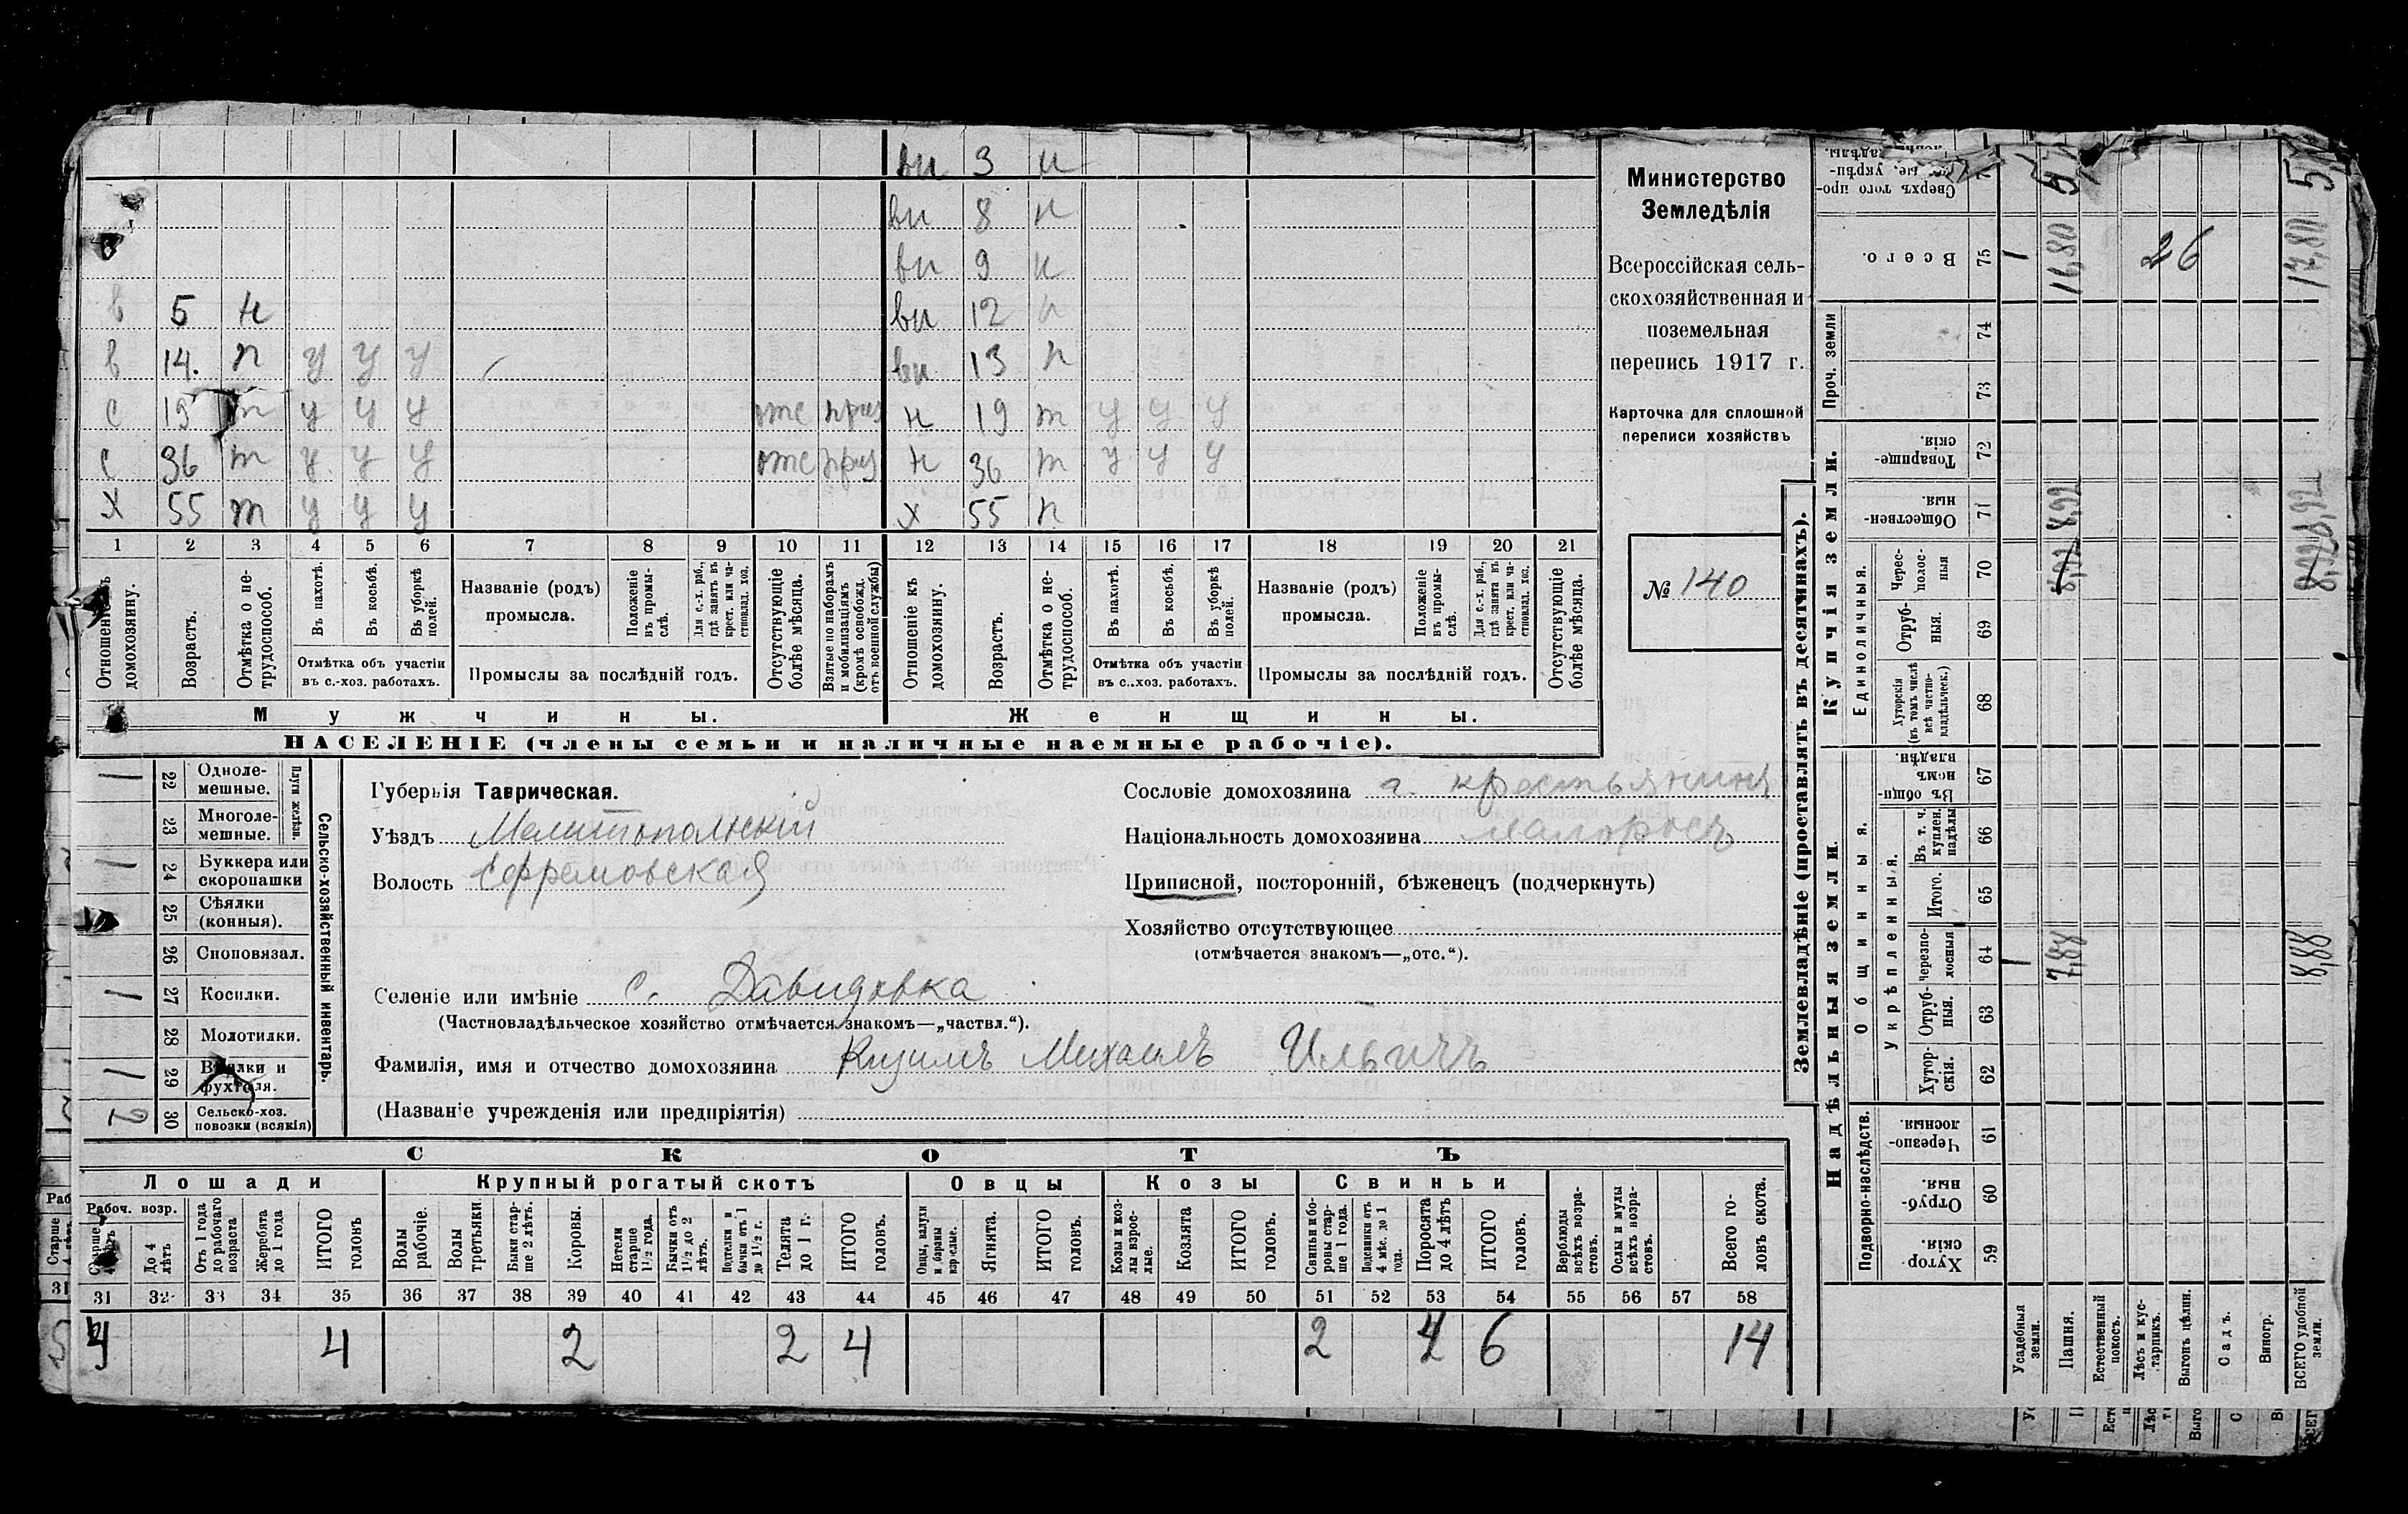 ви 3 н
ви 8 н
ви 9 н
в 5 н ви 12 н
в 14. п у у у ви 13 п
с 19 т у у у отс приз н 19 т у у у
с 36 т у у у отс приз н 36 т у у у
х 55 т у у у х 55 п
1 2 3 4 5 6 7 8 9 10 11 12 13 14 15 16 17 18 19 20 21
Отношеніе къ домохозяину.
Возрастъ.
Отмѣтка о нетрудоспособ.
Въ пахотѣ.
Въ косьбѣ.
Въ уборкѣ полей.
Отмѣтка объ участіи въ с.-хоз. работахъ.
Названіе (родъ) промысла.
Положеніе въ промыслѣ.
Для с.-х. раб., гдѣ занятъ въ крест. или частновлад. хоз.
Промыслы за послѣдній годъ.
Отсутствующіе болѣе мѣсяца.
Взятые по наборамъ и мобилизаціямъ (кромѣ освобожд. отъ военной службы)
Отношеніе къ домохозяину.
Возрастъ.
Отмѣтка о нетрудоспособ.
Въ пахотѣ.
Въ косьбѣ.
Въ уборкѣ полей.
Отмѣтка объ участіи въ с..хоз. работахъ.
Названіе (родъ) промысла.
Положеніе въ промыслѣ.
Для с.-х. раб., гдѣ занята въ крест. или частновлад. хоз.
Промыслы за послѣдній годъ.
Отсутствующіе болѣе мѣсяца.
Мужчины.
Женщины.
НАСЕЛЕНІЕ (члены семьи и наличные наемные рабочіе).
Министерство
Земледѣлія
Всероссійская сель-
скохозяйственная и
поземельная
перепись 1917 г.
Карточка для сплошной
переписи хозяйствъ
№ 140
Сельско-хозяйственный инвентарь.
Плуги желѣзн.
1 22 Одноле-мешные.
23 Многоле-мешные.
1 24 Буккера или скоропашки
25 Сѣялки (конныя).
26 Сноповязал.
1 27 Косилки.
28 Молотилки.
1 29 Вѣялки и фухтеля.
2 30 Сельско-хоз. повозки (всякія)
Губернія Таврическая.
Уѣздъ Мелитопольскій
Волость Ефремовская
Селеніе или имѣніе с. Давидовка
(Частновладѣльческое хозяйство отмѣчается знакомъ—„частвл.“).
Фамилія, имя и отчество домохозяина Кизимъ Михаилъ Ильичъ
(Названіе учрежденія или предпріятія)
Сословіе домохозяина крестьянинъ
Національность домохозяина малоросъ
Приписной, посторонній, бѣженецъ (подчеркнуть)
Хозяйство отсутствующее
(отмѣчается знакомъ—„отс.“).
СКОТЪ
Лошади
Рабоч. возр.
До 4 лѣтъ
Отъ 1 года до рабочаго возраста
Жеребята до 1 года
ИТОГО головъ
Крупный рогатый скотъ
Волы рабочіе.
Волы третьяки.
Быки старше 2 лѣтъ.
Коровы.
Нетели старше 1½ года.
Бычки отъ 1½ до 2 лѣтъ.
Подтелки и бычки отъ 1 до 1½ г.
Телята до 1 г.
ИТОГО головъ.
Овцы
Овцы, валухи и бараны взрослые.
Ягнята.
ИТОГО головъ.
Козы
Козы и козлы взрослые.
Козлята
ИТОГО головъ.
Свиньи
Свиньи и боровы старше 1 года.
Подсвинки отъ 4 мѣс. до 1 года.
Поросята до 4 лѣтъ
ИТОГО головъ.
Верблюды всѣхъ возрастовъ.
Ослы и мулы всѣхъ возрастовъ.
Всего головъ скота.
31 32 33 34 35 36 37 38 39 40 41 42 43 44 45 46 47 48 49 50 51 52 53 54 55 56 57 58
4 4 2 2 4 2 4 6 14
Землевладѣніе (проставлять въ десятинахъ).
Надѣльныя земли.
Подворно-наслѣдств.
Хуторскія 59
Отрубныя. 60
Черезполосныя. 61
Общинныя.
Укрѣпленныя.
Хуторскія. 62
Отрубныя. 63
Черезполосныя 64
Итого. 65
Въ т. ч. куплен. надѣлы 66
Въ общинномъ владѣн. 67
Купчія земли.
Единоличныя.
Хуторскія (въ томъ числѣ всѣ частновладѣльческ.) 68
Отрубныя. 69
Чересполосныя 70
Общественныя. 71
Товарищескія. 72
Проч. земли
73
74
Всего. 75
Усадебныя земли.
Пашня.
Естественный покосъ.
Лѣсъ и кустарникъ.
Выгонъ цѣлин.
Садъ.
Виногр.
ВСЕГО удобной земли.
1 7,88 8,88
8,92 8,92
8,92 8,92
1 16,80 26 17,80